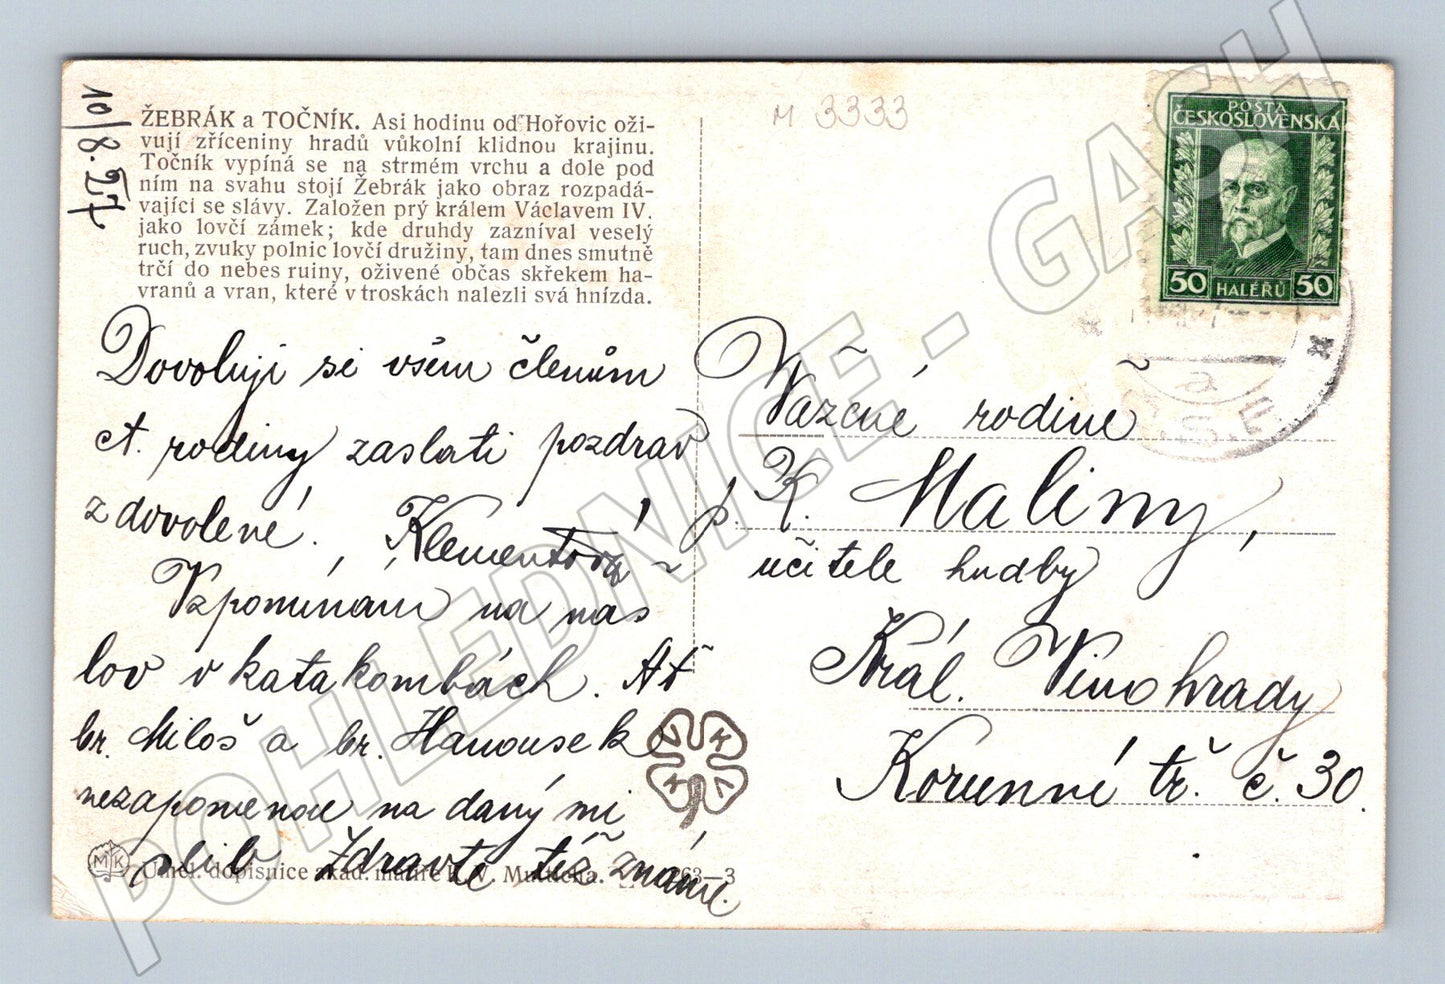 10/8. 27
ŽEBRÁK a TOČNÍK. Asi hodinu od Hořovic oži-
vují zříceniny hradů vůkolní klidnou krajinu.
Točník vypíná se na strmém vrchu a dole pod
ním na svahu stojí Žebrák jako obraz rozpadá-
vající se slávy. Založen prý králem Václavem IV.
jako lovčí zámek; kde druhdy zazníval veselý
ruch, zvuky polnic lovčí družiny, tam dnes smutně
trčí do nebes ruiny, oživené občas skřekem ha-
vranů a vran, které v troskách nalezli svá hnízda.
Dovoluji si všem členům
ct. rodiny zaslati pozdrav
z dovolené. Klementová
Vzpomínám na nás
lov v katakombách. Ať
br. Miloš a br. Hanousek
nezapomenou na daný mi
slib Zdravte též známé.
MK
Uměl. dopisnice akad. malíře K. V. Mutticha. 263—3
M 3333
POŠTA
ČESKOSLOVENSKÁ
50 HALÉŘŮ 50
a
Vážené rodině
p. K. Maliny,
učitele hudby
Král. Vinohrady
Korunní tř. č. 30.
V K V K
POHLEDNICE - GASH